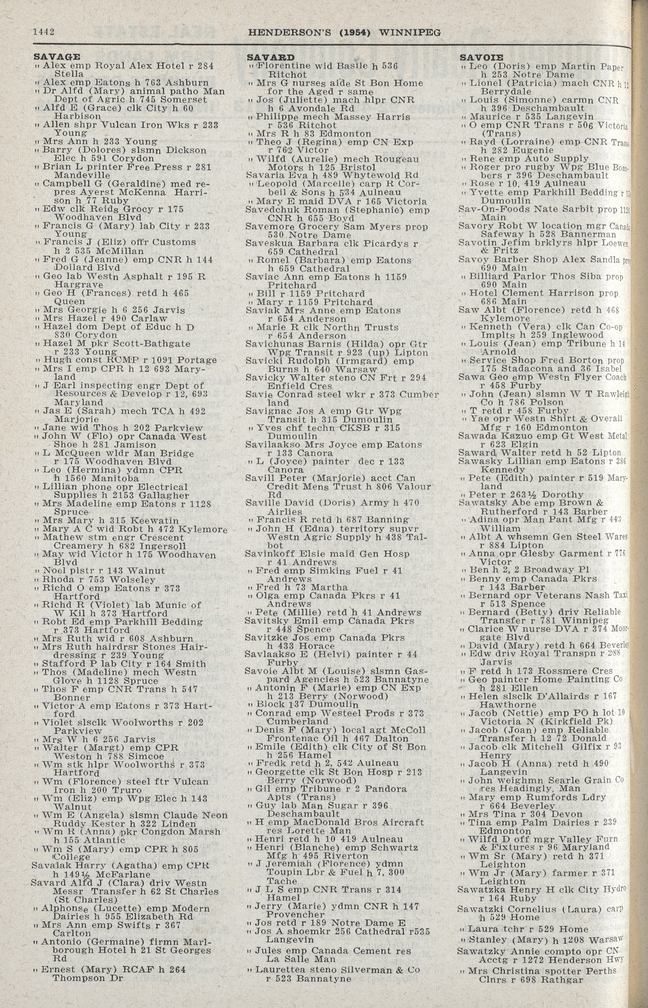 1442
HENDERSON'S (1954) WINNIPEG
SAVAGE
" Alex emp Royal Alex Hotel r 284
Stella
" Alex emp Eatons h 763 Ashburn
" Dr Alfd (Mary) animal patho Man
Dept of Agric h 745 Somerset
" Alfd E (Grace) clk City h 60
Harbison
" Allen shpr Vulcan Iron Wks r 233
Young
" Mrs Ann h 233 Young
" Barry (Dolores) slsmn Dickson
Elec h 591 Corydon
" Brian L printer Free Press r 281
Mandeville
" Campbell G (Geraldine) med re-
pres Ayerst McKenna Harri-
son h 77 Ruby
" Edw clk Reidg Grocy r 175
Woodhaven Blvd
" Francis G (Mary) lab City r 233
Young
" Francis J (Eliz) offr Customs
h 2 535 McMillan
" Fred G (Jeanne) emp CNR h 144
Dollard Blvd
" Geo lab Westn Asphalt r 195 R
Hargrave
" Geo H (Frances) retd h 465
Queen
" Mrs Georgie h 6 256 Jarvis
" Mrs Hazel r 490 Carlaw
" Hazel dom Dept of Educ h D
830 Corydon
" Hazel M pkr Scott-Bathgate
r 233 Young
" Hugh const RCMP r 1091 Portage
" Mrs I emp CPR h 12 693 Mary-
land
" J Earl inspecting engr Dept of
Resources & Develop r 12, 693
Maryland
" Jas E (Sarah) mech TCA h 492
Marjorie
" Jane wid Thos h 202 Parkview
" John W (Flo) opr Canada West
Shoe h 281 Jamison
" L McQueen wldr Man Bridge
r 175 Woodhaven Blvd
" Leo (Hermina) ydmn CPR
h 1560 Manitoba
" Lillian phone opr Electrical
Supplies h 2153 Gallagher
" Mrs Madeline emp Eatons r 1128
Spruce
" Mrs Mary h 315 Keewatin
" Mary A C wid Robt h 472 Kylemore
" Mathew stm engr Crescent
Creamery h 682 Ingersoll
" May wid Victor h 175 Woodhaven
Blvd
" Noel plstr r 143 Walnut
" Rhoda r 753 Wolseley
" Richd O emp Eatons r 373
Hartford
" Richd R (Violet) lab Munic of
W Kil h 373 Hartford
" Robt Ed emp Parkhill Bedding
r 373 Hartford
" Mrs Ruth wid r 608 Ashburn
" Mrs Ruth hairdrsr Stones Hair-
dressing r 239 Young
" Stafford P lab City r 164 Smith
" Thos (Madeline) mech Westn
Glove h 1128 Spruce
" Thos F emp CNR Trans h 547
Bonner
" Victor A emp Eatons r 373 Hart-
ford
" Violet slsclk Woolworths r 202
Parkview
" Mrs W h 6 256 Jarvis
" Walter (Margt) emp CPR
Weston h 788 Simcoe
" Wm stk hlpr Woolworths r 373
Hartford
" Wm (Florence) steel ftr Vulcan
Iron h 200 Truro
" Wm (Eliz) emp Wpg Elec h 143
Walnut
" Wm E (Angela) slsmn Claude Neon
Ruddy Kester h 322 Linden
" Wm R (Anna) pkr Congdon Marsh
h 155 Atlantic
" Wm S (Mary) emp CPR h 805
College
Savalak Harry (Agatha) emp CPR
h 149½ McFarlane
Savard Alfd J (Clara) driv Westn
Messr Transfer h 62 St Charles
(St Charles)
" Alphonse (Lucette) emp Modern
Dairies h 955 Elizabeth Rd
" Mrs Ann emp Swifts r 367
Carlton
" Antonio (Germaine) firmn Marl-
borough Hotel h 21 St Georges
Rd
" Ernest (Mary) RCAF h 264
Thompson Dr
SAVARD
" Florentine wid Basile h 536
Ritchot
" Mrs G nurses aide St Bon Home
for the Aged r same
" Jos (Juliette) mach hlpr CNR
h 6 Avondale Rd
" Philippe mech Massey Harris
r 536 Ritchot
" Mrs R h 83 Edmonton
" Theo J (Regina) emp CN Exp
r 762 Victor
" Wilfd (Aurelie) mech Rougeau
Motors h 125 Bristol
Savaria Eva h 489 Whytewold Rd
" Leopold (Marcelle) carp R Cor-
beil & Sons h 534 Aulneau
" Mary E maid DVA r 165 Victoria
Savedchuk Roman (Stephanie) emp
CNR h 655 Boyd
Savemore Grocery Sam Myers prop
530 Notre Dame
Saveskua Barbara clk Picardys r
659 Cathedral
" Romel (Barbara) emp Eatons
h 659 Cathedral
Saviac Ann emp Eatons h 1159
Pritchard
" Bill r 1159 Pritchard
" Mary r 1159 Pritchard
Saviak Mrs Anne emp Eatons
r 654 Anderson
" Marie R clk Northn Trusts
r 654 Anderson
Savichunas Barnis (Hilda) opr Gtr
Wpg Transit r 923 (up) Lipton
Savicki Rudolph (Irmgard) emp
Burns h 640 Warsaw
Savicky Walter steno CN Frt r 294
Enfield Cres
Savie Conrad steel wkr r 373 Cumber
land
Savignac Jos A emp Gtr Wpg
Transit h 315 Dumoulin
" Yves chf techn CKSB r 315
Dumoulin
Savilaakso Mrs Joyce emp Eatons
r 133 Canora
" L (Joyce) painter dec r 133
Canora
Savill Peter (Marjorie) acct Can
Credit Mens Trust h 806 Valour
Rd
Saville David (Doris) Army h 470
Airlies
" Francis R retd h 687 Banning
" John H (Edna) territory supvr
Westn Agric Supply h 438 Tal-
bot
Savinkoff Elsie maid Gen Hosp
r 41 Andrews
" Fred emp Simkins Fuel r 41
Andrews
" Fred h 73 Martha
" Olga emp Canada Pkrs r 41
Andrews
" Pete (Millie) retd h 41 Andrews
Savitsky Emil emp Canada Pkrs
r 448 Spence
Savitzke Jos emp Canada Pkrs
h 433 Horace
Savlaakso E (Helvi) painter r 44
Furby
Savoie Albt M (Louise) slsmn Gas-
pard Agencies h 523 Bannatyne
" Antonin F (Marie) emp CN Exp
h 213 Berry (Norwood)
" Block 137 Dumoulin
" Conrad emp Westeel Prods r 373
Cumberland
" Denis F (Mary) local agt McColl
Frontenac Oil h 467 Dalton
" Emile (Edith) clk City of St Bon
h 256 Hamel
" Fredk retd h 2, 542 Aulneau
" Georgette clk St Bon Hosp r 213
Berry (Norwood)
" Gil emp Tribune r 2 Pandora
Apts (Trans)
" Guy lab Man Sugar r 396
Deschambault
" H emp MacDonald Bros Aircraft
res Lorette Man
" Henri retd h 10 419 Aulneau
" Henri (Blanche) emp Schwartz
Mfg h 495 Riverton
" J Jeremiah (Florence) ydmn
Toupin Lbr & Fuel h 7, 300
Tache
" J L S emp CNR Trans r 314
Hamel
" Jerry (Marie) ydmn CNR h 147
Provencher
" Jos retd r 189 Notre Dame E
" Jos A shoemkr 256 Cathedral r535
Langevin
" Jules emp Canada Cement res
La Salle Man
" Laurettea steno Silverman & Co
r 523 Bannatyne
SAVOIE
" Leo (Doris) emp Martin Paper
h 253 Notre Dame
" Lionel (Patricia) mach CNR h
Berrydale
" Louis (Simonne) carmn CNR
h 396 Deschambault
" Maurice r 535 Langevin
" O emp CNR Trans r 506 Victoria
(Trans)
" Rayd (Lorraine) emp CNR Trans
h 282 Eugenie
" Rene emp Auto Supply
" Roger pro rugby Wpg Blue Bom-
bers r 396 Deschambault
" Rose r 10, 419 Aulneau
" Yvette emp Parkhill Bedding r
Dumoulin
Sav-On-Foods Nate Sarbit prop
Main
Savory Robt W location mgr Canada
Safeway h 528 Bannerman
Savotin Jefim brklyrs hlpr Loewen
& Fritz
Savoy Barber Shop Alex Sandla pro
690 Main
" Billiard Parlor Thos Siba prop
690 Main
" Hotel Clement Harrison prop
686 Main
Saw Albt (Florence) retd h 468
Kylemore
" Kenneth (Vera) clk Can Co-op
Implts h 259 Inglewood
" Louis (Jean) emp Tribune h 14
Arnold
" Service Shop Fred Borton prop
175 Stadacona and 36 Isabel
Sawa Geo emp Westn Flyer Coach
r 458 Furby
" John (Jean) slsmn W T Rawleigh
Co h 786 Polson
" T retd r 458 Furby
" Yae opr Westn Shirt & Overall
Mfg r 160 Edmonton
Sawada Kazuo emp Gt West Metal
r 623 Elgin
Saward Walter retd h 52 Lipton
Sawasky Lillian emp Eatons r 286
Kennedy
" Pete (Edith) painter r 519 Mary-
land
" Peter r 263½ Dorothy
Sawatsky Abe emp Brown &
Rutherford r 143 Barber
" Adina opr Man Pant Mfg r 443
William
" Albt A whsemn Gen Steel Wares
r 884 Lipton
" Anna opr Glesby Garment r 776
Victor
" Ben h 2, 2 Broadway Pl
" Benny emp Canada Pkrs
r 143 Barber
" Bernard opr Veterans Nash Taxi
r 513 Spence
" Bernard (Betty) driv Reliable
Transfer r 781 Winnipeg
" Clarice W nurse DVA r 374 Moor-
gate Blvd
" David (Mary) retd h 664 Beverley
" Edw driv Royal Transpn r 288
Jarvis
" F retd h 173 Rossmere Cres
" Geo painter Home Painting Co
h 281 Ellen
" Helen slsclk D'Allairds r 167
Hawthorne
" Jacob (Nettie) emp PO h lot 10
Victoria N (Kirkfield Pk)
" Jacob (Joan) emp Reliable
Transfer h 12 72 Donald
" Jacob clk Mitchell Gilfix r 93
Henry
" Jacob H (Anna) retd h 490
Langevin
" John weighmn Searle Grain Co
res Headingly, Man
" Mary emp Rumfords Ldry
r 664 Beverley
" Mrs Tina r 304 Devon
" Tina emp Palm Dairies r 239
Edmonton
" Wilfd D off mgr Valley Furn
& Fixtures r 96 Maryland
" Wm Sr (Mary) retd h 371
Leighton
" Wm Jr (Mary) farmer r 371
Leighton
Sawatzka Henry H clk City Hydro
r 164 Ruby
Sawatzki Cornelius (Laura) carp
h 529 Home
" Laura tchr r 529 Home
" Stanley (Mary) h 1208 Warsaw
Sawatzky Annie compto opr CN
Acctg r 1272 Henderson Hwy
" Mrs Christina spotter Perths
Clnrs r 698 Rathgar